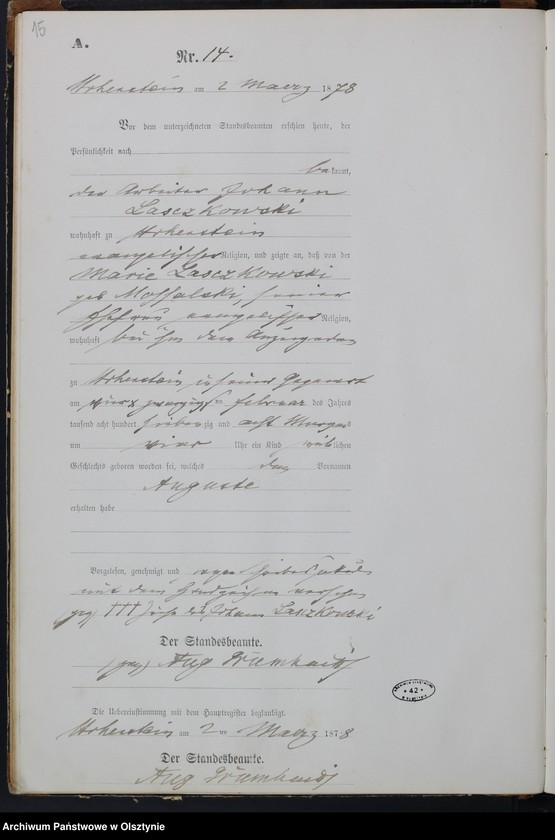 15
A.
Nr. 14.
Hohenstein am 2 Maerz 1878
Vor dem unterzeichneten Standesbeamten erschien heute, der
Persönlichkeit nach
bekannt,
der Arbeiter Johann
Lasczkowski
wohnhaft zu Hohenstein
evangelischer Religion, und zeigte an, daß von der
Marie Lasczkowski
geb Mossalski, seiner
Ehefrau evangelischer Religion,
wohnhaft bei ihm dem Anzeigenden
zu Hohenstein in seiner Gegenwart
am vier zwanzigsten Februar des Jahres
tausend acht hundert siebenzig und acht Morgens
um vier Uhr ein Kind weiblichen
Geschlechts geboren worden sei, welches den Vornamen
Auguste
erhalten habe
Vorgelesen, genehmigt und wegen
mit dem Handzeichen versehen
gez) ††† Johann Laszkowski
Der Standesbeamte.
(gez) Aug
Die Uebereinstimmung mit dem Hauptregister beglaubigt.
Hohenstein am 2ten Maerz 1878
Der Standesbeamte.
Aug
42
Archiwum Państwowe w Olsztynie